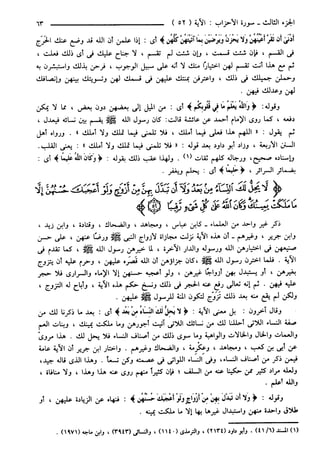 الجزء الثالث - سورة الأحزاب : الآية ( ٥٢ ) ٦٣
أَدْنَىٰ أَن تَقَرَّ أَعْيُنُهُنَّ وَلَا يَحْزَنَّ وَيَرْضَيْنَ بِمَا آتَيْتَهُنَّ كُلُّهُنَّ ﴾ أي : إذا علمن أن الله قد وضع عنك الحرج
في القسم ، فإن شئت قسمت ، وإن شئت لم تقسم ، لا جناح عليك في أي ذلك فعلت ،
ثم مع هذا أنت تقسم لهن اختياراً منك لا أنه على سبيل الوجوب ، فرحن بذلك واستبشرن به
وحملن جميلك في ذلك ، واعترفن بمنتك عليهن في قسمك لهن وتسويتك بينهن وإنصافك
لهن وعدلك فيهن .
وقوله : ﴿ وَاللَّهُ يَعْلَمُ مَا فِي قُلُوبِكُمْ ﴾ أي : من الميل إلى بعضهن دون بعض ، مما لا يمكن
دفعه ، كما روى الإمام أحمد عن عائشة قالت : كان رسول الله ﷺ يقسم بين نسائه فيعدل ،
ثم يقول : « اللهم هذا فعلي فيما أملك ، فلا تلمني فيما تملك ولا أملك » . ورواه أهل
السنن الأربعة ، وزاد أبو داود بعد قوله : « فلا تلمني فيما تملك ولا أملك » : يعني القلب .
وإسناده صحيح ، ورجاله كلهم ثقات (١) . ولهذا عقب ذلك بقوله : ﴿ وَكَانَ اللَّهُ عَلِيمًا ﴾ أي :
بضمائر السرائر ، ﴿ حَلِيمًا ﴾ أي : يحلم ويغفر .
﴿ لَّا يَحِلُّ لَكَ النِّسَاءُ مِن بَعْدُ وَلَا أَن تَبَدَّلَ بِهِنَّ مِنْ أَزْوَاجٍ وَلَوْ أَعْجَبَكَ حُسْنُهُنَّ إِلَّا
ذكر غير واحد من العلماء - كابن عباس ، ومجاهد ، والضحاك ، وقتادة ، وابن زيد ،
وابن جرير ، وغيرهم - أن هذه الآية نزلت مجازاة لأزواج النبي ﷺ ورضا عنهن ، على حسن
صنيعهن في اختيارهن الله ورسوله والدار الآخرة ، لما خيرهن رسول الله ﷺ ، كما تقدم في
الآية . فلما اخترن رسول الله ﷺ ، كان جزاؤهن أن الله قصره عليهن ، وحرم عليه أن يتزوج
بغيرهن ، أو يستبدل بهن أزواجاً غيرهن ، ولو أعجبه حسنهن إلا الإماء والسراري فلا حجر
عليه فيهن . ثم إنه تعالى رفع عنه الحجر في ذلك ونسخ حكم هذه الآية ، وأباح له التزوج ،
ولكن لم يقع منه بعد ذلك تزوج لتكون المنة للرسول ﷺ عليهن .
وقال آخرون : بل معنى الآية : ﴿ لَّا يَحِلُّ لَكَ النِّسَاءُ مِن بَعْدُ ﴾ أي : بعد ما ذكرنا لك من
صفة النساء اللاتي أحللنا لك من نسائك اللاتي آتيت أجورهن وما ملكت يمينك ، وبنات العم
والعمات والخال والخالات والواهبة وما سوى ذلك من أصناف النساء فلا يحل لك . هذا مروي
عن أبي بن كعب ، ومجاهد ، وعكرمة ، والضحاك وغيرهم . واختار ابن جرير أن الآية عامة
فيمن ذكر من أصناف النساء ، وفي النساء اللواتي في عصمته وكن تسعاً . وهذا الذي قاله جيد ،
ولعله مراد كثير ممن حكينا عنه من السلف ؛ فإن كثيراً منهم روي عنه هذا وهذا ، ولا منافاة ،
والله أعلم .
وقوله : ﴿ وَلَا أَن تَبَدَّلَ بِهِنَّ مِنْ أَزْوَاجٍ وَلَوْ أَعْجَبَكَ حُسْنُهُنَّ ﴾ : فنهاه عن الزيادة عليهن ، أو
طلاق واحدة منهن واستبدال غيرها بها إلا ما ملكت يمينه .
(١) المسند (٤١/٦) . وأبو داود (٢١٣٤) ، والترمذي (١١٤٠) ، والنسائي (٣٩٤٣) ، وابن ماجه (١٩٧١) .